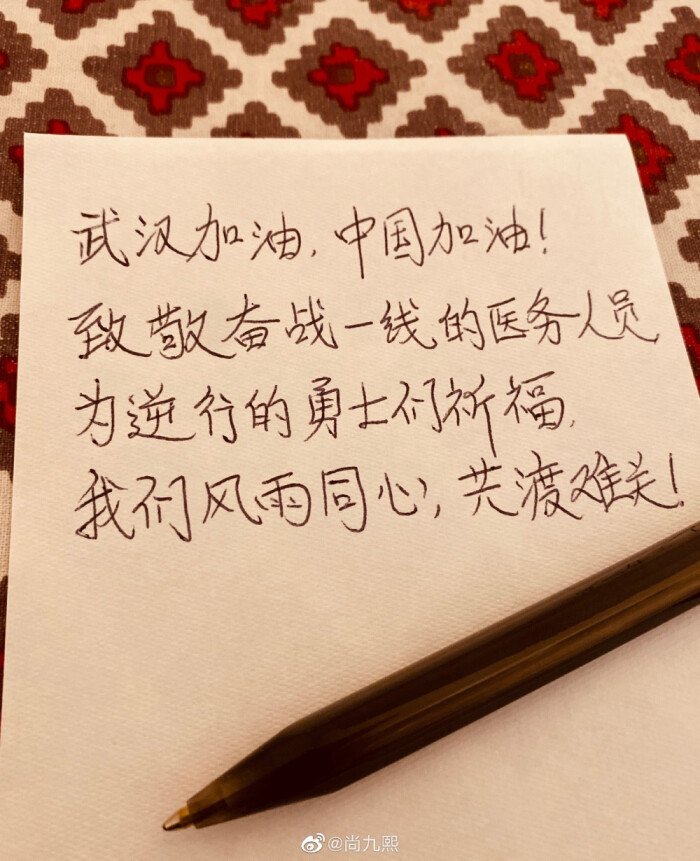 武汉加油，中国加油！
致敬奋战一线的医务人员
为逆行的勇士们祈福，
我们风雨同心，共渡难关！
@尚九熙